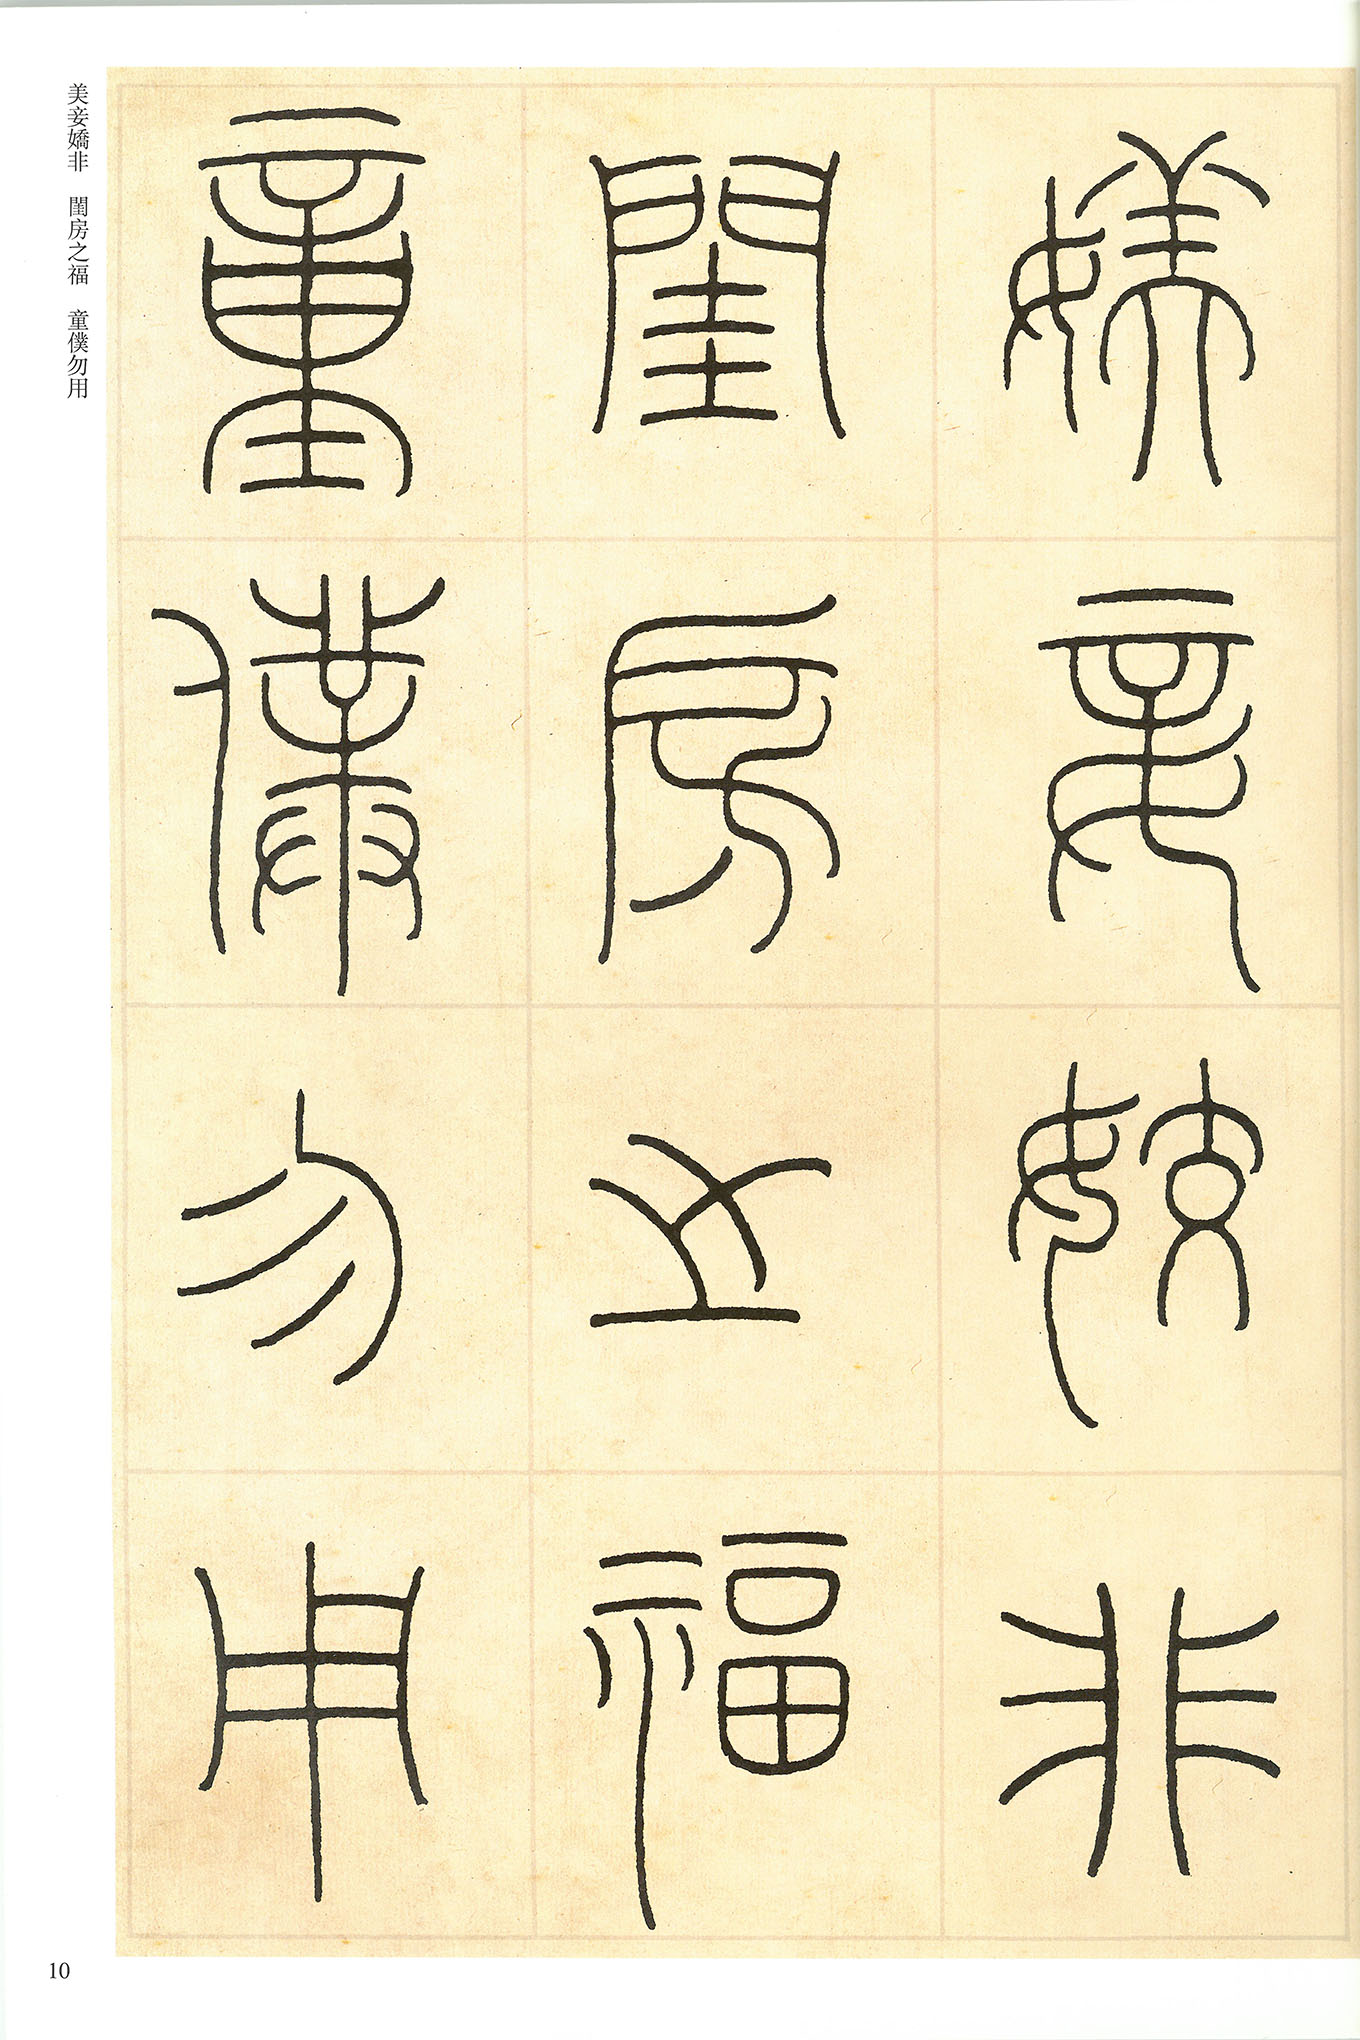 媄妾姣非
閨房之福
童僕勿用
美妾嬌非　閨房之福　童僕勿用
10